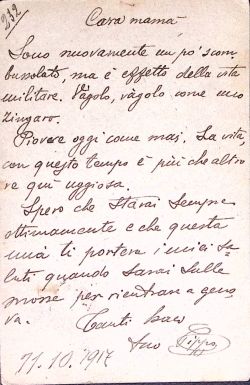 232
Cara mamà
Sono nuovamente un po' scom
bussolato, ma è effetto della vita
militare. Vagolo, vagolo come uno
Zingaro.
Piovere oggi come mai. La vita
con questo tempo è più che altro
re qui uggiosa.
Spero che starai sempre
ottimamente e che questa
mia ti porterà i miei sa-
luti quando sarai sulle
mosse per rientrare a geno-
va.
Tanti baci
tuo Pippo
11.10.1917